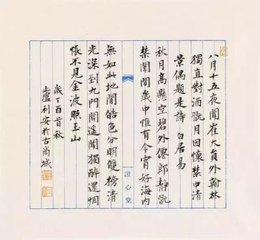 八月十五夜聞崔大員外翰林
獨直對酒翫月因懷禁中清
景偶題是詩 白居易
秋月高懸空碧外僊郎靜翫
禁闈間歲中惟有今宵好海內
澄心堂
無如此地閒皓色分明雙闕榜清
光深到九門關遙聞獨醉還惆
悵不見金波照玉山
歲丁酉首秋
盧利安於古商城